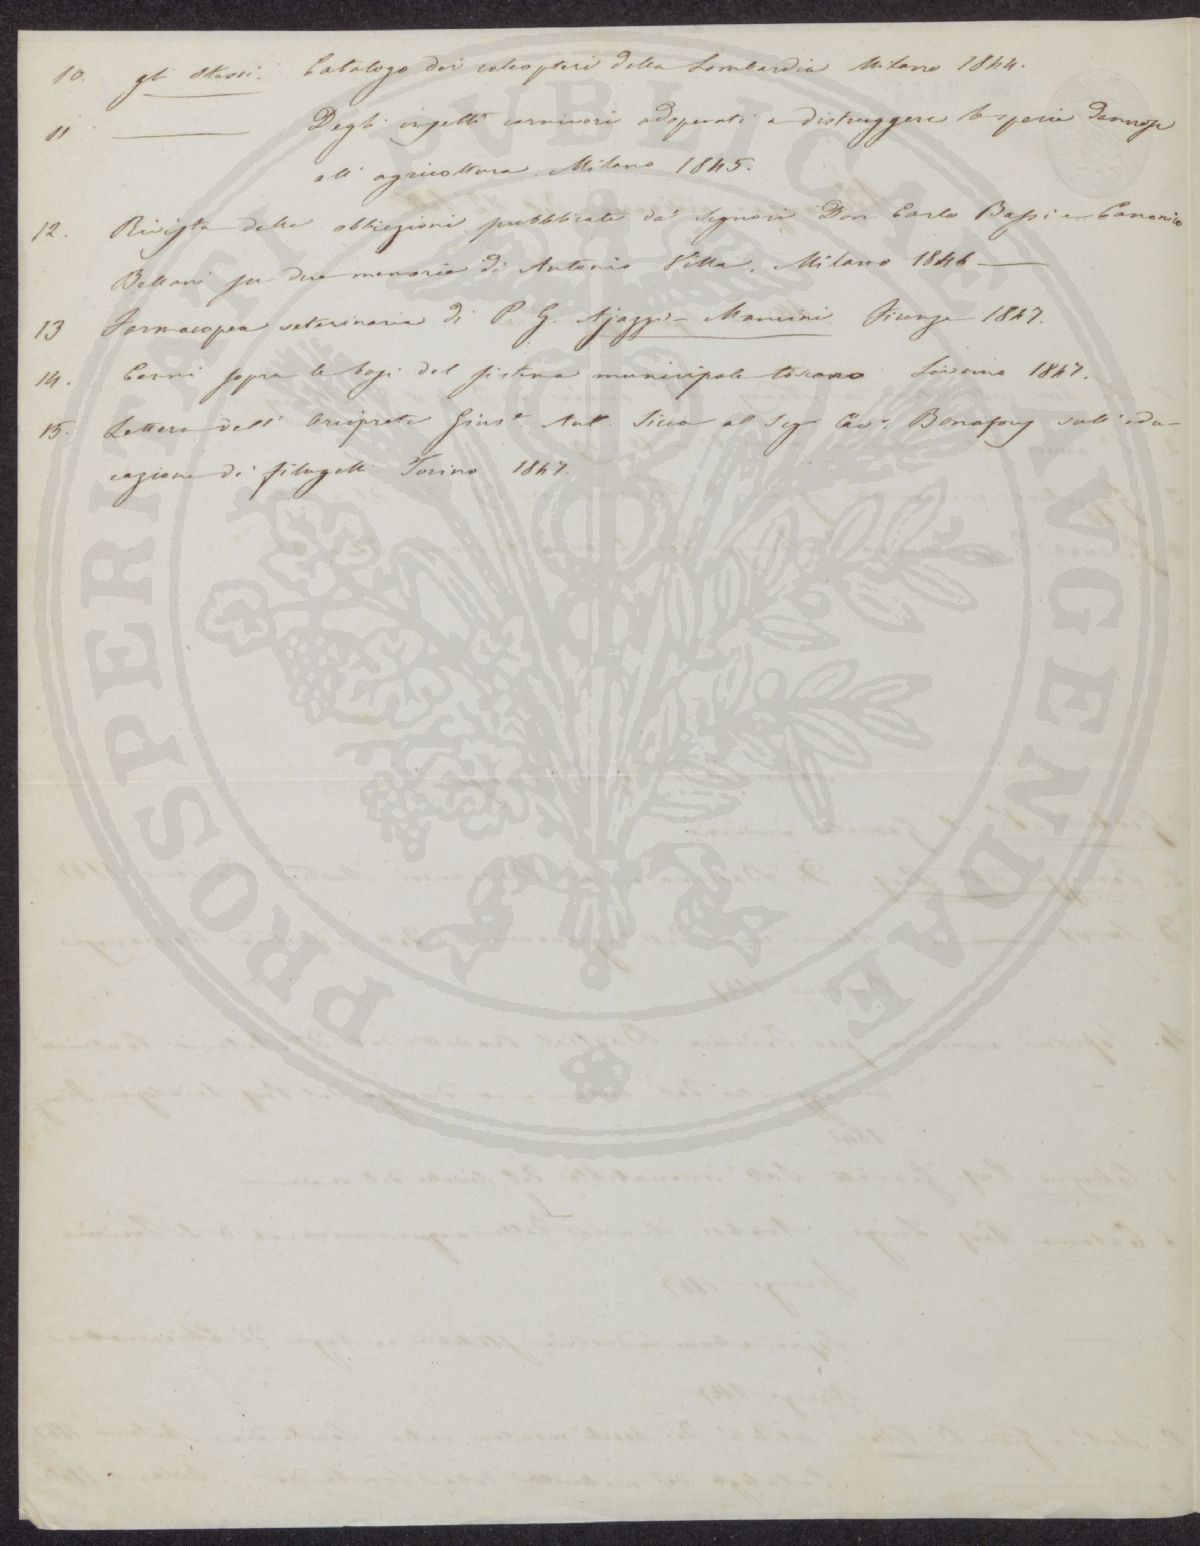 10. gli stessi. Catalogo dei coleopteri della Lombardia Milano 1844.
11 Degli insetti carnivori adoperati a distruggere le specie dannose
all' agricoltura. Milano 1845.
12. Rivista delle obbiezioni pubblicate da' Signori Don Carlo Bassi e Canonico
Bellani su due memorie di Antonio Villa. Milano 1846
13 Farmacopea veterinaria di P. G. Ajazzi-Mancini Firenze 1847.
14. Cenni sopra le basi del sistema municipale toscano Livorno 1847.
15. Lettera dell' Arciprete Gius.e Ant. al Sig Cav.e Bonafous sull' edu-
cazione di filugelli Torino 1847.
PROSPERITATI PUBLICAE AUGENDAE